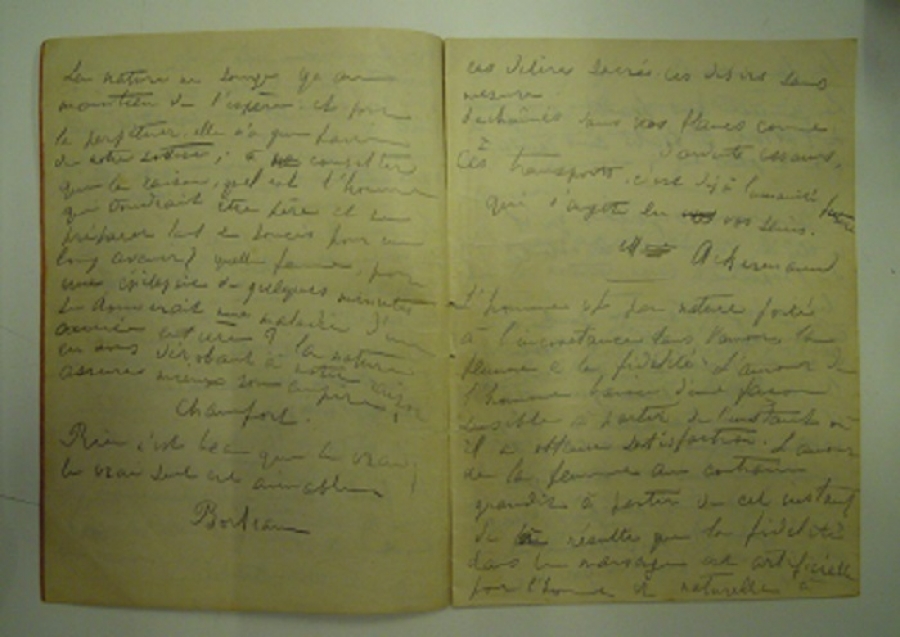 La nature ne songe qu'au
maintien de l'espèce. et pour
la perpétuer, elle n'a que faire
de notre sottise, à consulter
que la raison, quel est l'homme
qui voudrait être père et se
préparer tant de soucis pour un
long avenir? quelle femme, pour
une épilepsie de quelques minutes
se donnerait une maladie d'une
année entière? la nature
en nous dérobant à notre raison
assure mieux son empire;
Chamfort.
Rien n'est beau que le vrai,
le vrai seul est aimable
Boileau
ces délires sacrés, ces désirs sans
mesure
déchaînés dans vos flancs comme
d'ardents essaims,
Ces transports, c'est déjà l'humanité future
qui s'agite en vos seins.
Ackermann
L'homme est par nature porté
à l'inconstance dans l'amour, la
femme à la fidélité. L'amour de
l'homme baisse d'une façon
sensible à partir de l'instant où
il a obtenu satisfaction. L'amour
de la femme au contraire
grandit à partir de cet instant
résulte que la fidélité
dans le mariage est artificielle
pour l'homme et naturelle à